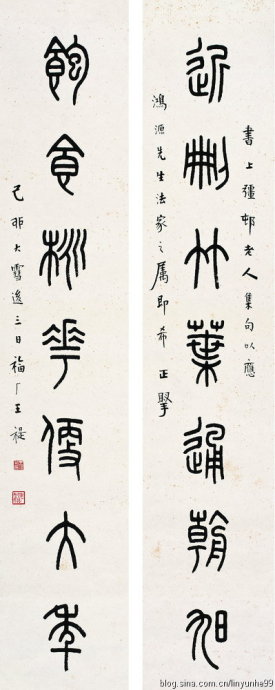 近刪竹葉通朝旭
書上彊邨老人集句以應
鴻源先生法家之屬即希正掔
飽食桃花便大年
己卯大雪後三日福厂王禔
blog.sina.com.cn/linyunhe99